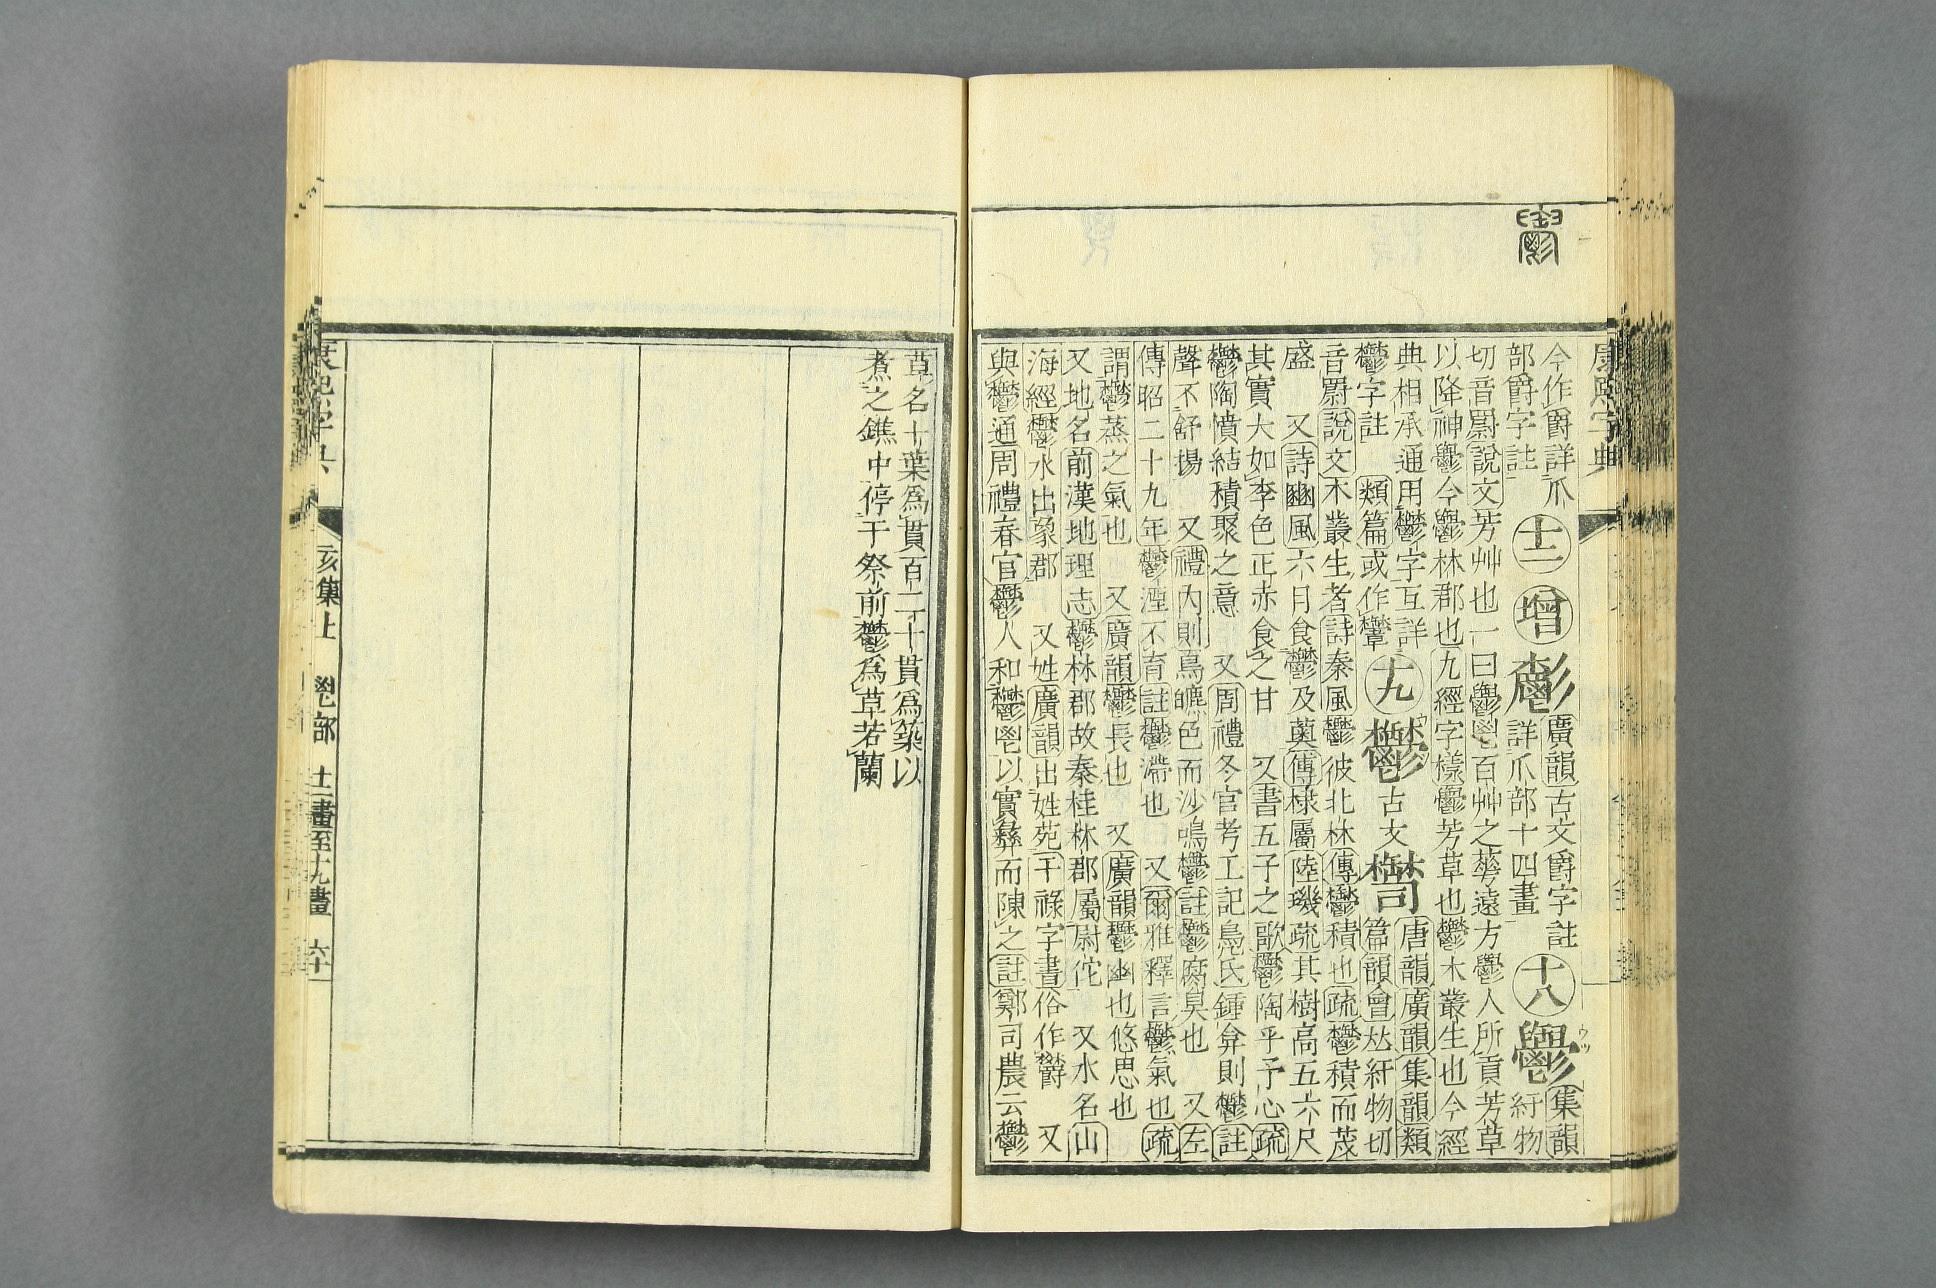 康熙字典
今作爵詳爪
部爵字註
十二
增
廣韻古文爵字註
詳爪部十四畫
十八
鬱
ウツ
集韻
紆物
切音罻說文芳艸也一曰鬱鬯百艸之華遠方鬱人所貢芳草
以降神鬱今鬱林郡也九經字樣鬱芳草也鬱木叢生也今經
典相承通用鬱字互詳
鬱字註
類篇或作
十九
鬱
古文
唐韻廣韻集韻類
篇韻會𠀤紆物切
音罻說文木叢生者詩秦風鬱彼北林傳鬱積也疏鬱積而茂
盛 又詩豳風六月食鬱及薁傳棣屬陸璣疏其樹高五六尺
其實大如李色正赤食之甘 又書五子之歌鬱陶乎予心疏
鬱陶憤結積聚之意 又周禮冬官考工記鳧氏鍾弇則鬱註
聲不舒揚 又禮內則鳥皫色而沙鳴鬱註鬱腐臭也 又左
傳昭二十九年鬱湮不育註鬱滯也 又爾雅釋言鬱氣也疏
謂鬱蒸之氣也 又廣韻鬱長也 又廣韻鬱幽也悠思也
又地名前漢地理志鬱林郡故秦桂林郡屬尉佗 又水名山
海經鬱水出象郡 又姓廣韻出姓苑干祿字書俗作欝 又
與鬱通周禮春官鬱人和鬱鬯以實彝而陳之註鄭司農云鬱
草名十葉爲貫百二十貫爲築以
煮之鐎中停于祭前鬱爲草若蘭
康熙字典
亥集上 鬯部 十二畫至十九畫 六十一